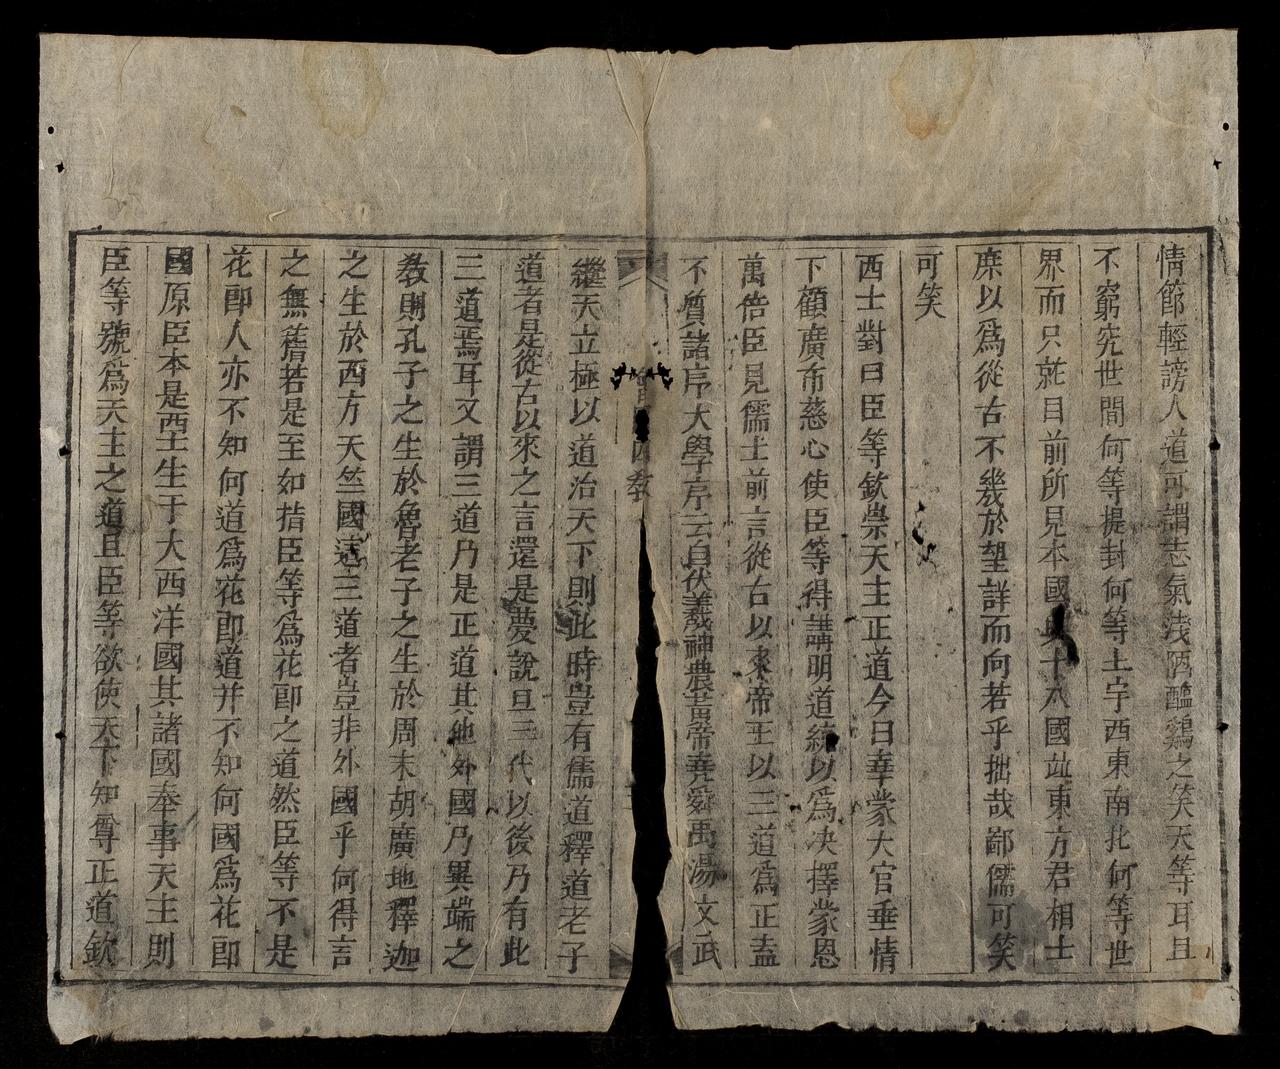 情節輕謗人道可謂志氣淺陋醯鷄之笑天等耳且
不窮究世間何等提封何等土宇西東南北何等世
界而只就目前所見本國十八國址東方君相士
庶以爲從古不幾於望詳而向若乎拙哉鄙儒可笑
可笑
西士對曰臣等欽崇天主正道今日幸蒙大官垂情
下顧廣布慈心使臣等得講明道統以爲决擇蒙恩
萬倍臣見儒士前言從古以來帝王以三道爲正盍
不質諸序大學序云自伏羲神農黃帝堯舜禹湯文武
四教
繼天立極以道治天下則此時豈有儒道釋道老子
道者是從古以來之言還是夢說且三代以後乃有此
三道焉耳又謂三道乃是正道其他外國乃異端之
教則孔子之生於魯老子之生於周末胡廣地釋迦
之生於西方天竺國這三道者豈非外國乎何得言
之無稽若是至如指臣等爲花郎之道然臣等不是
花郎人亦不知何道爲花郎道并不知何國爲花郎
國原臣本是西士生于大西洋國其諸國奉事天主則
臣等號爲天主之道且臣等欲使天下知尊正道欽